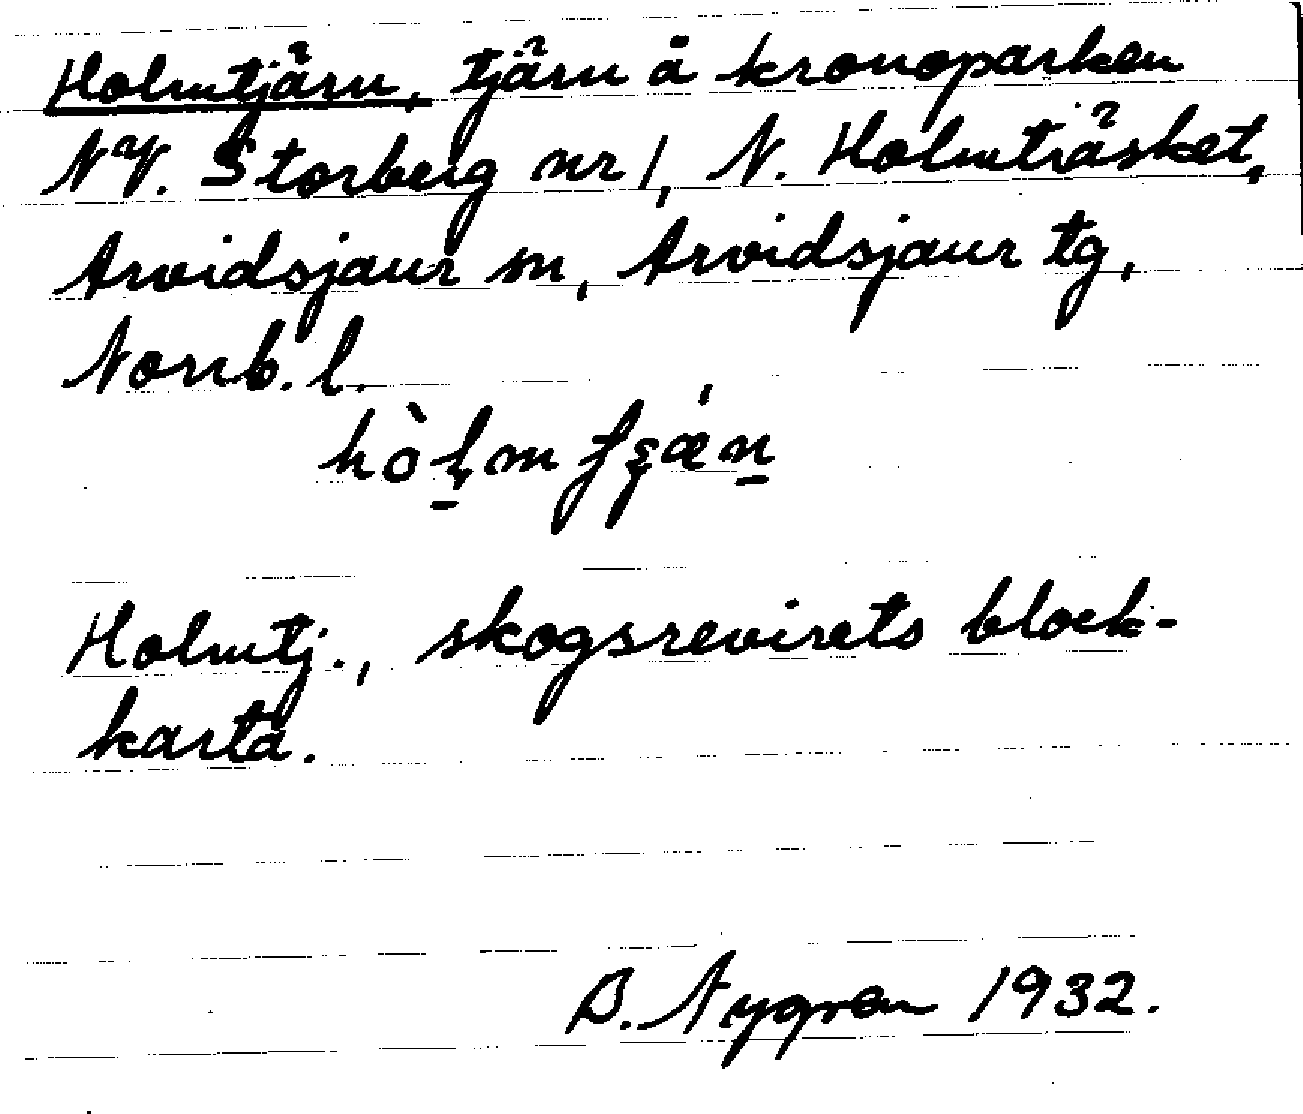 Holmtjärn, tjärn å kronoparken
NV. Storberg nr 1, N. Holmträsket,
Arvidsjaur sn, Arvidsjaur tg,
Norrb. l.
Holmtj., skogsrevirets block-
karta.
B. Nygren 1932.